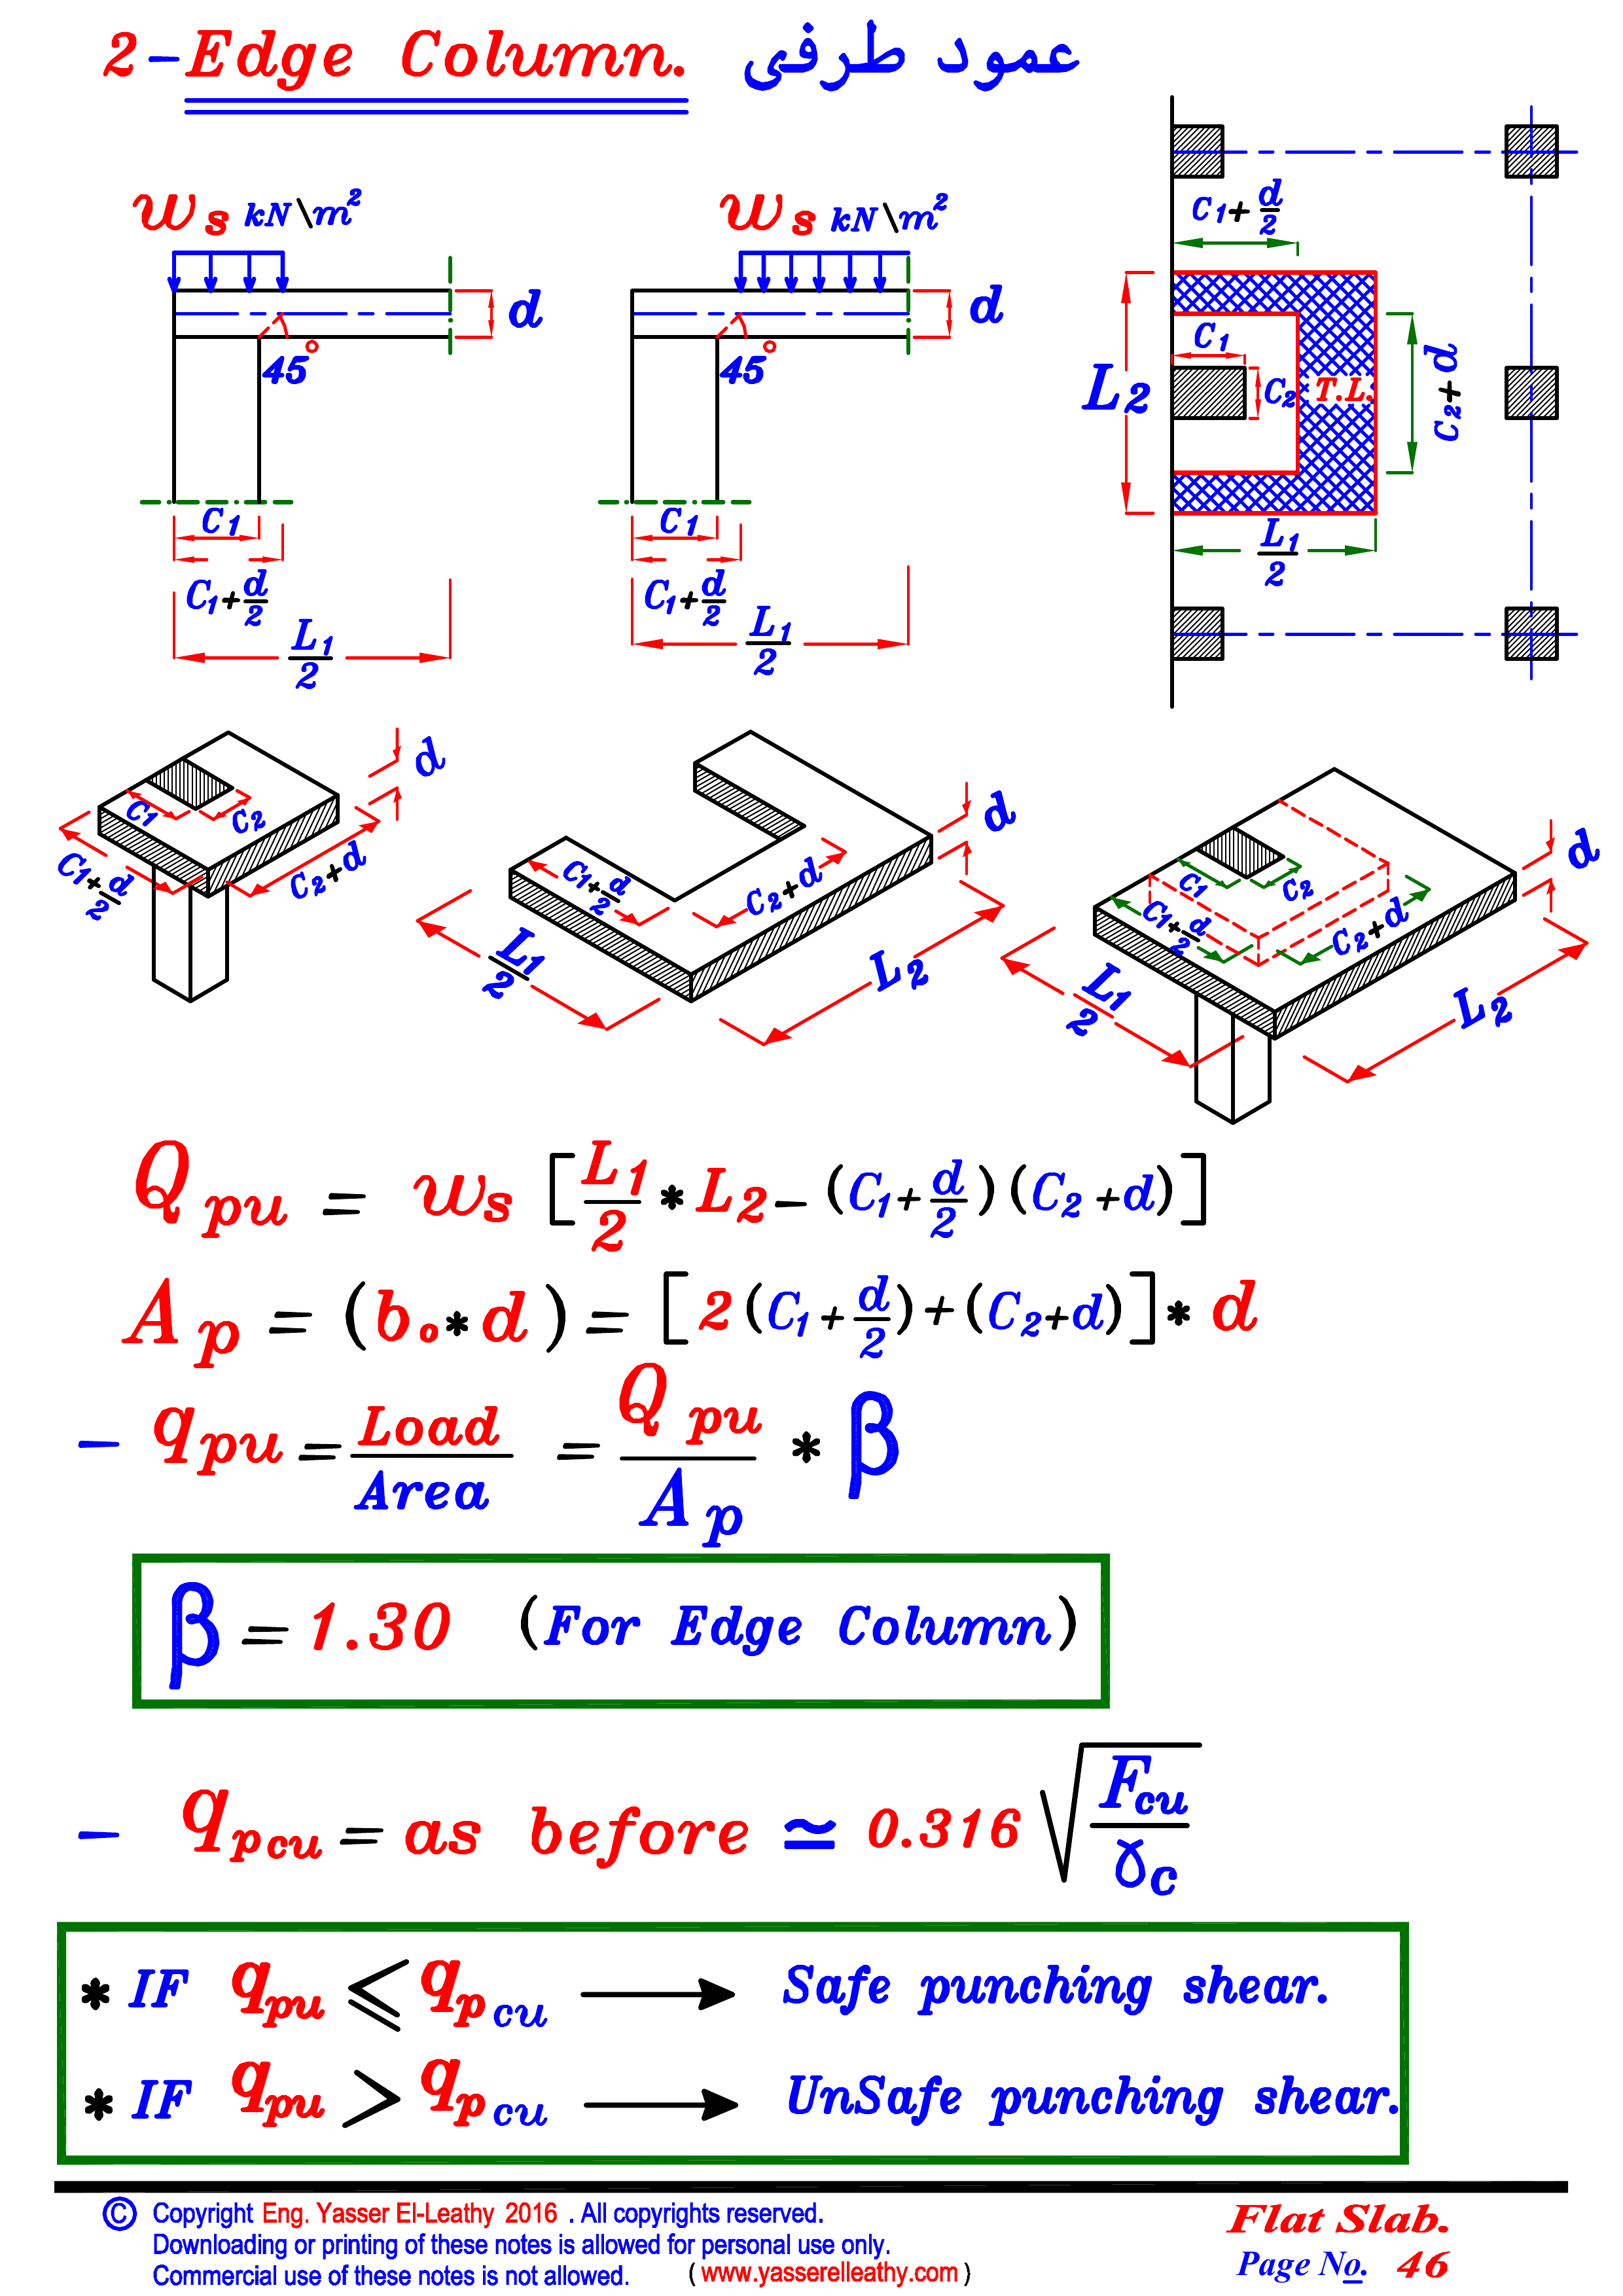 2-Edge Column. عمود طرفى
w s kN\m²
w s kN\m²
C1+ d/2
d
d
45°
45°
L2
C1
C2
T.L.
C2+d
C1
C1+ d/2
L1/2
C1
C1+ d/2
L1/2
L1/2
d
C1
C2
C1+ d/2
C2+d
d
C1+ d/2
C2+d
L1/2
L2
d
C1
C2
C1+ d/2
C2+d
L1/2
L2
Q pu = ws [ L1/2 * L2 - (C1+ d/2)(C2+d) ]
A p = (b o * d) = [ 2 (C1+ d/2) + (C2+d) ] * d
- q pu = Load/Area = Q pu / A p * β
β = 1.30 (For Edge Column)
- q p cu = as before ≃ 0.316 √(Fcu/γc)
* IF q pu ⩽ q p cu ⟶ Safe punching shear.
* IF q pu > q p cu ⟶ UnSafe punching shear.
© Copyright Eng. Yasser El-Leathy 2016 . All copyrights reserved.
Downloading or printing of these notes is allowed for personal use only.
Commercial use of these notes is not allowed. ( www.yasserelleathy.com )
Flat Slab.
Page No. 46